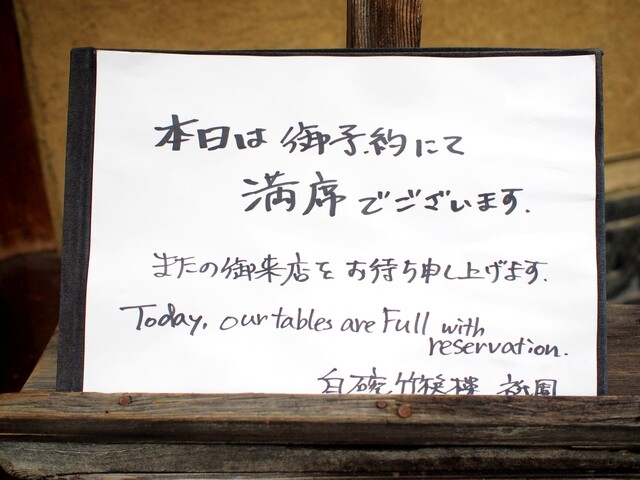 本日は御予約にて
満席でございます.
またの御来店をお待ち申し上げます.
Today, our tables are Full with
reservation.
白碗竹筷樓 祇園